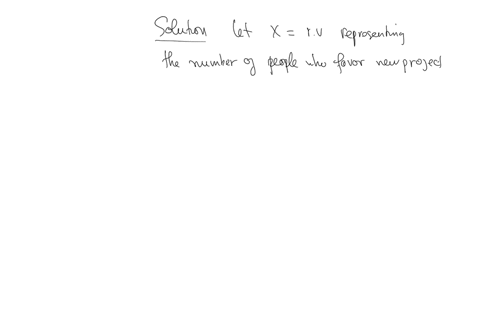 Solution let X = r.v representing
the number of people who favor new project